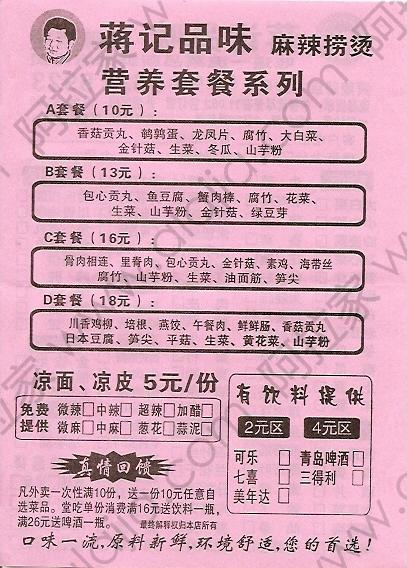 蒋记品味 麻辣捞烫
营养套餐系列
A套餐（10元）:
香菇贡丸、鹌鹑蛋、龙凤片、腐竹、大白菜、
金针菇、生菜、冬瓜、山芋粉
B套餐（13元）:
包心贡丸、鱼豆腐、蟹肉棒、腐竹、花菜、
生菜、山芋粉、金针菇、绿豆芽
C套餐（16元）:
骨肉相连、里脊肉、包心贡丸、金针菇、素鸡、海带丝
腐竹、山芋粉、生菜、油面筋、笋尖
D套餐（18元）:
川香鸡柳、培根、燕饺、午餐肉、鲜鲜肠、香菇贡丸
日本豆腐、笋尖、平菇、生菜、黄花菜、山芋粉
凉面、凉皮 5元/份
免费 微辣□ 中辣□ 超辣□ 加醋□
提供 微麻□ 中麻□ 葱花□ 蒜泥□
有饮料提供
2元区 4元区
可乐□ 青岛啤酒□
七喜□ 三得利□
美年达□
真情回馈
凡外卖一次性满10份，送一份10元任意自
选菜品。堂吃单份消费满16元送饮料一瓶，
满26元送啤酒一瓶。 最终解释权归本店所有
口味一流，原料新鲜，环境舒适，您的首选！